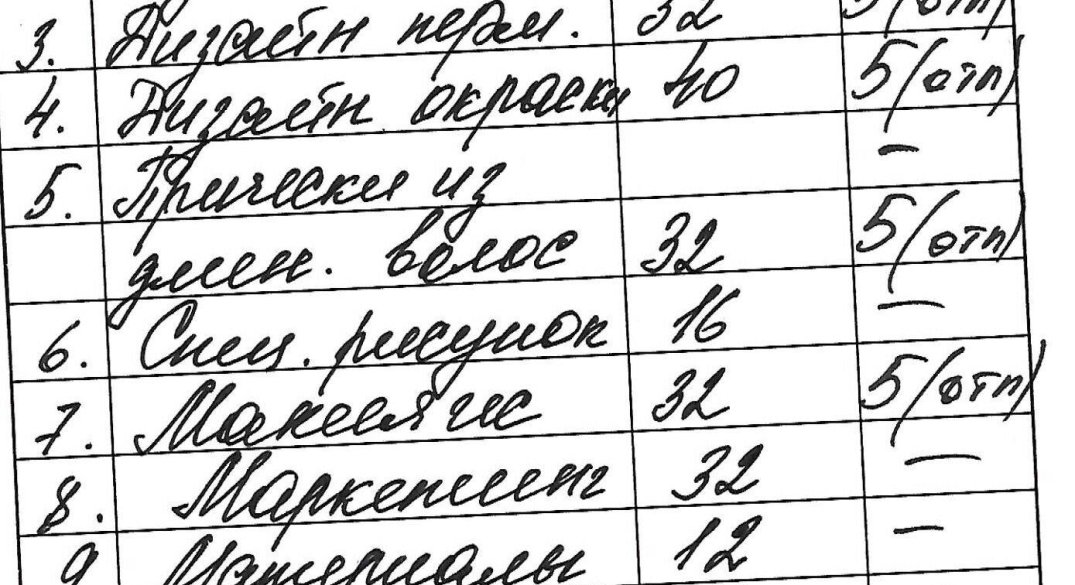 3. Дизайн перм. 32 5(отп)
4. Дизайн окраски 40 5(отп)
5. Прически из —
длин. волос 32 5(отп)
6. Спец. рисунок 16 —
7. Макияж 32 5(отп)
8. Маркетинг 32 —
9 Материалы 12 —